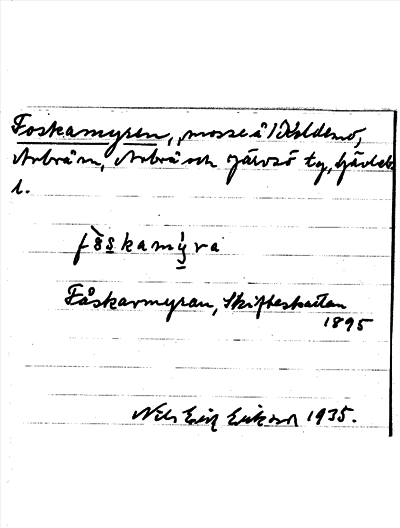 Foskamyren, mosse å Koldemo,
Arbrå sn, Arbrå och Järvsö tg, Gävleb.
l.
fòskamýra
Fåskarmyran, Skifteskartan
1895
Nils Erik Erikson 1935.